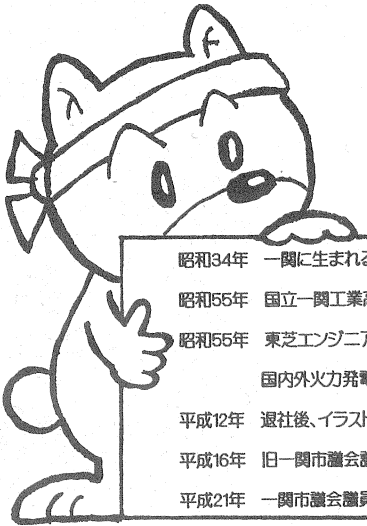 昭和34年 一関に生まれる
昭和55年 国立一関工業高
昭和55年 東芝エンジニア
国内外火力発電
平成12年 退社後、イラスト
平成16年 旧一関市議会議
平成21年 一関市議会議員